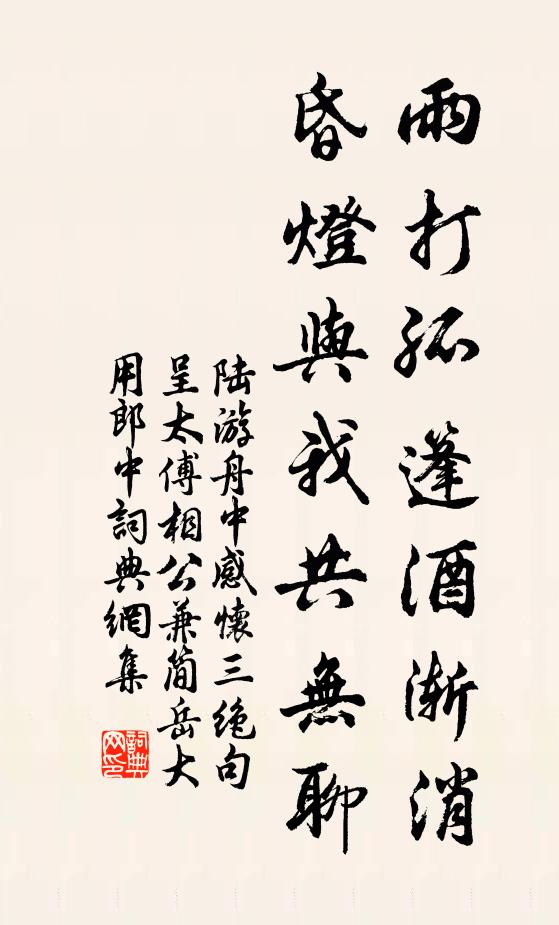 雨打孤蓬酒渐消
昏燈與我共無聊
陆游舟中感懷三绝句
呈太傅相公兼简岳大
用郎中詞典網集
詞典
网印